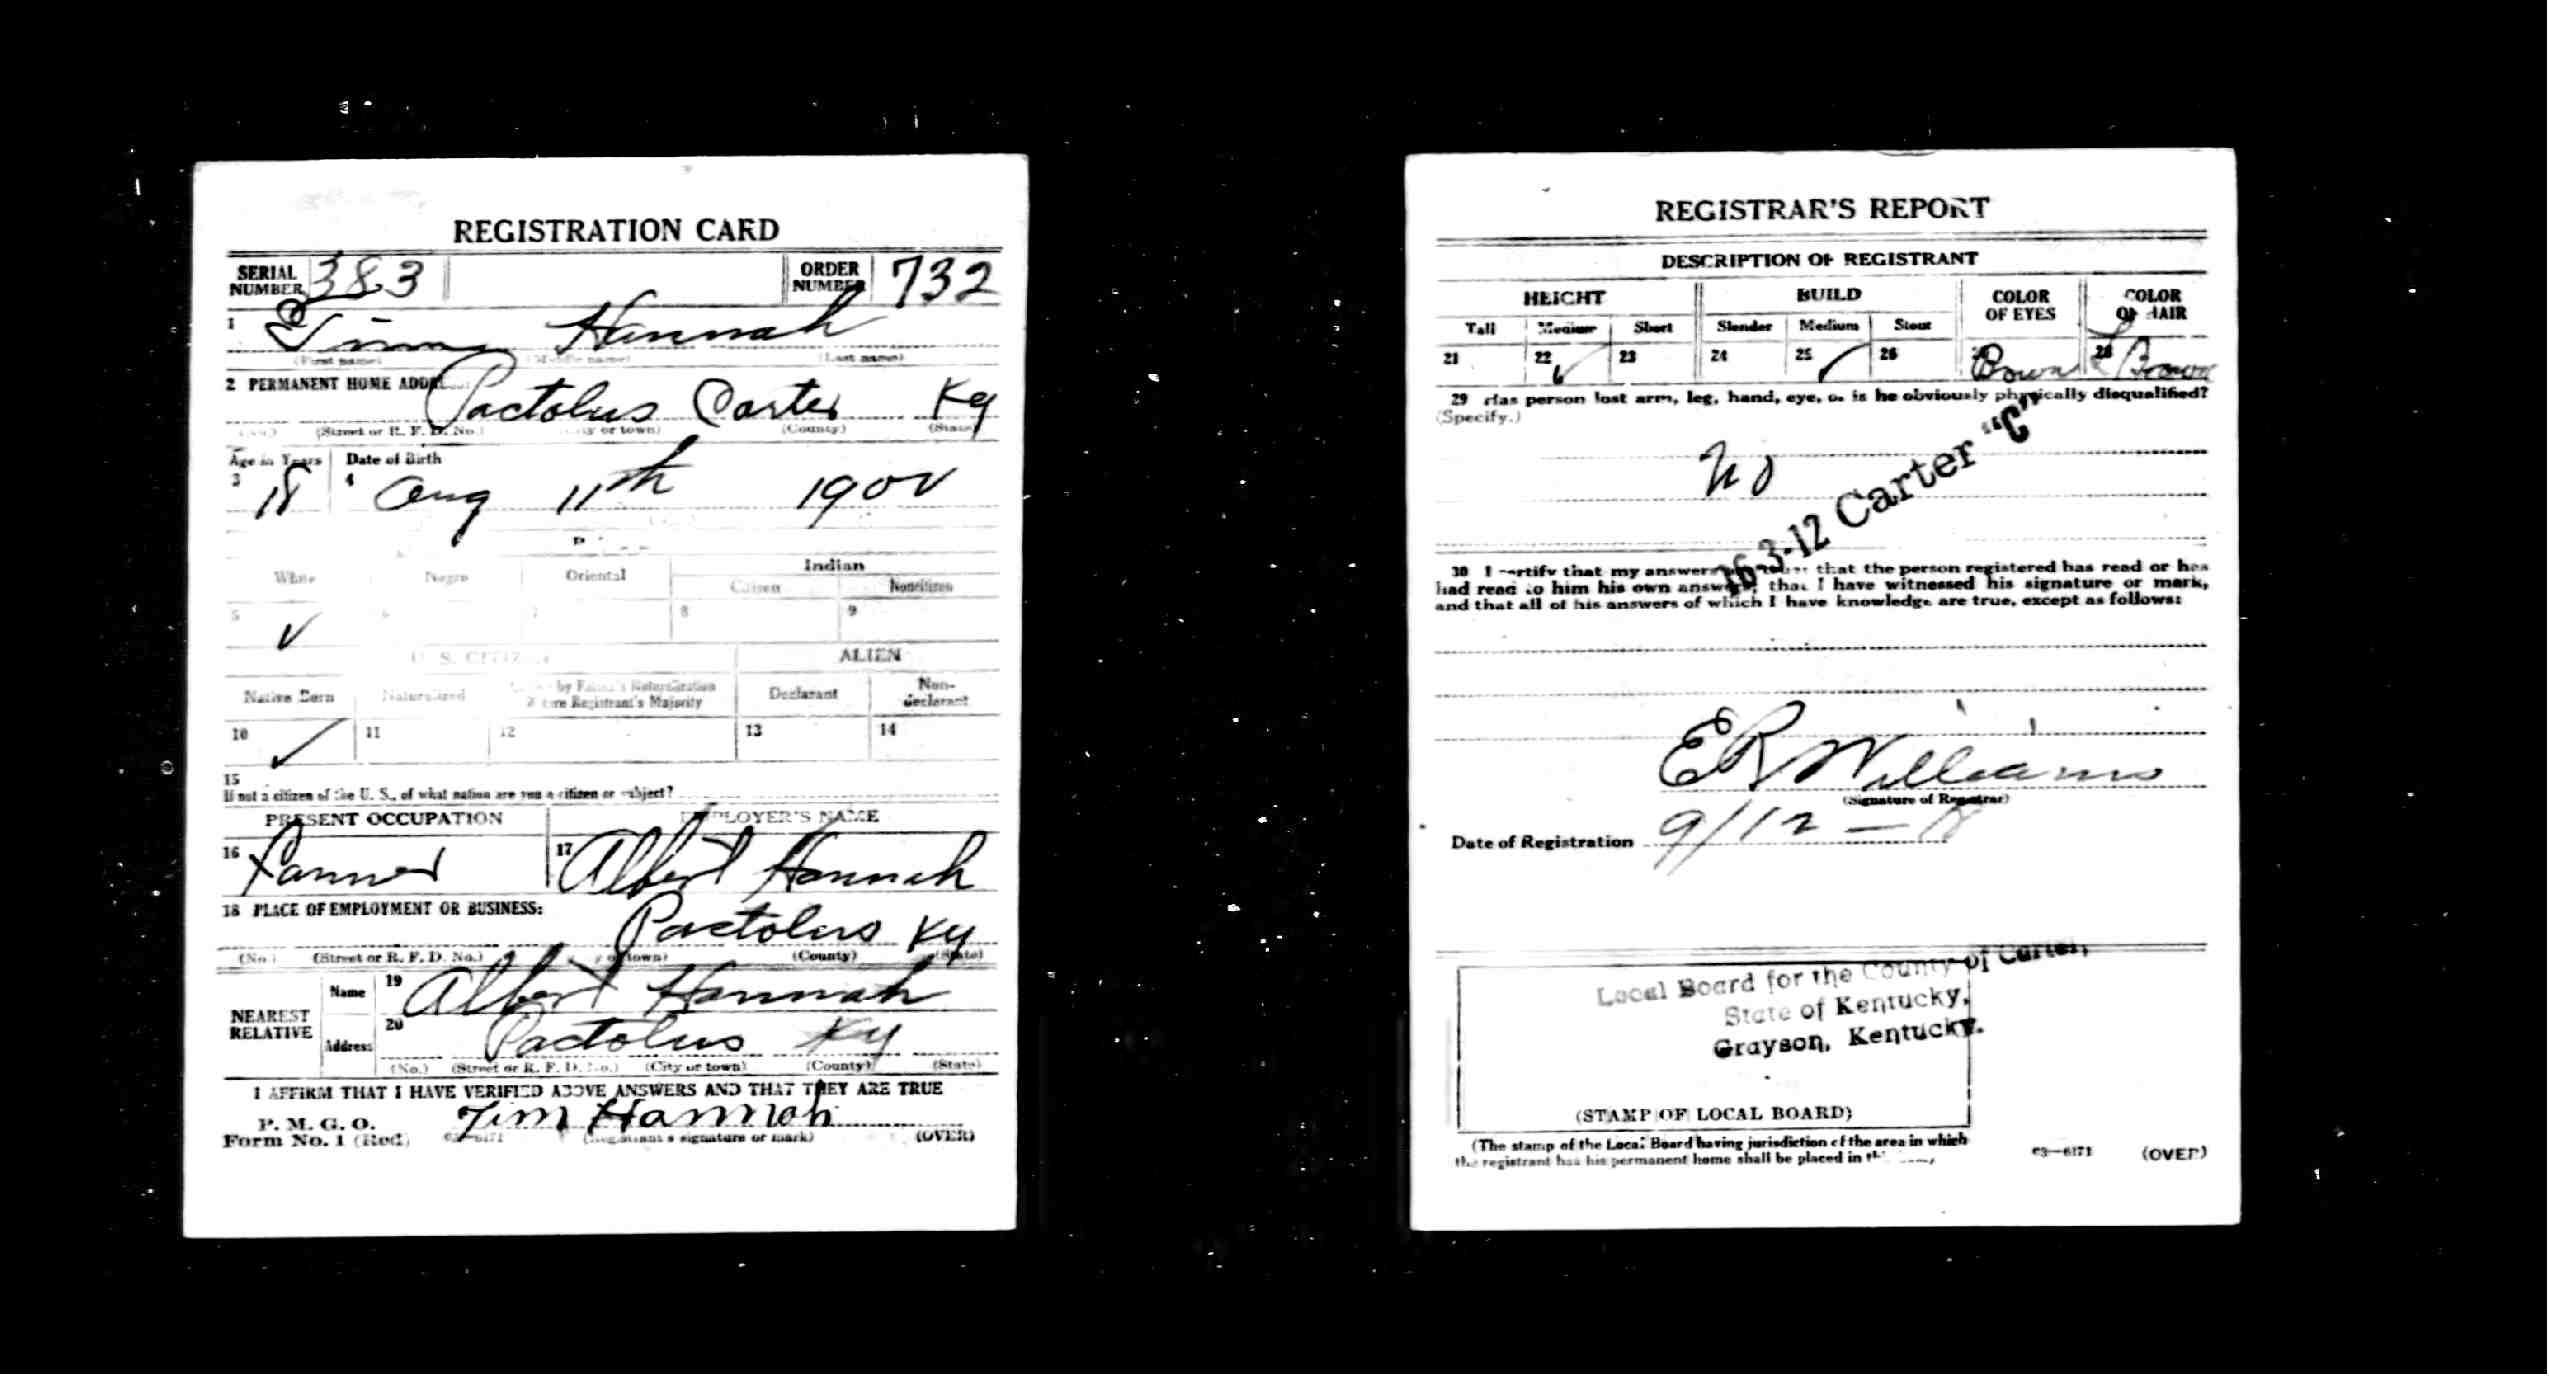 REGISTRATION CARD
SERIAL NUMBER 383 ORDER NUMBER 732
1 Hannah
(First name) (Middle name) (Last name)
2 PERMANENT HOME Pactolus Carter Ky
(Street or R. F. D. No.) or town) (County) (State)
Age in Years Date of Birth
3 18 4 Aug 11th 1900
Indian
White Negro Oriental Citizen Noncitizen
5 ✓ 8 9
U. S. ALIEN
Native Born Naturalized by Father's Naturalization Registrant's Majority Declarant Non-declarant
10 ✓ 11 12 13 14
15
If not a citizen of the U. S., of what nation are you a citizen or subject?
PRESENT OCCUPATION EMPLOYER'S NAME
16 Farmer 17 Albert Hannah
18 PLACE OF EMPLOYMENT OR BUSINESS:
Pactolus Ky
(No.) (Street or R. F. D. No.) town) (County) (State)
NEAREST RELATIVE Name 19 Albert Hannah
Address 20 Pactolus Ky
(No.) (Street or R. F. D. No.) (City or town) (County) (State)
I AFFIRM THAT I HAVE VERIFIED ABOVE ANSWERS AND THAT THEY ARE TRUE
P. M. G. O.
Form No. 1 (Red) 03-6171 Tim Hannah (Registrant's signature or mark) (OVER)
REGISTRAR'S REPORT
DESCRIPTION OF REGISTRANT
HEIGHT BUILD COLOR OF EYES COLOR OF HAIR
Tall Medium Short Slender Medium Stout
21 22 ✓ 23 24 25 ✓ 26 Brown 28 Brown
29 Has person lost arm, leg, hand, eye, or is he obviously physically disqualified?
(Specify.)
No
16-3-12 Carter "C"
30 I certify that my answers that the person registered has read or has
had read to him his own answers, that I have witnessed his signature or mark,
and that all of his answers of which I have knowledge are true, except as follows:
E R Williams
(Signature of Registrar)
Date of Registration 9/12 —
Local Board for the County of Carter,
State of Kentucky,
Grayson, Kentucky.
(STAMP OF LOCAL BOARD)
(The stamp of the Local Board having jurisdiction of the area in which
the registrant has his permanent home shall be placed in
03—6171 (OVER)